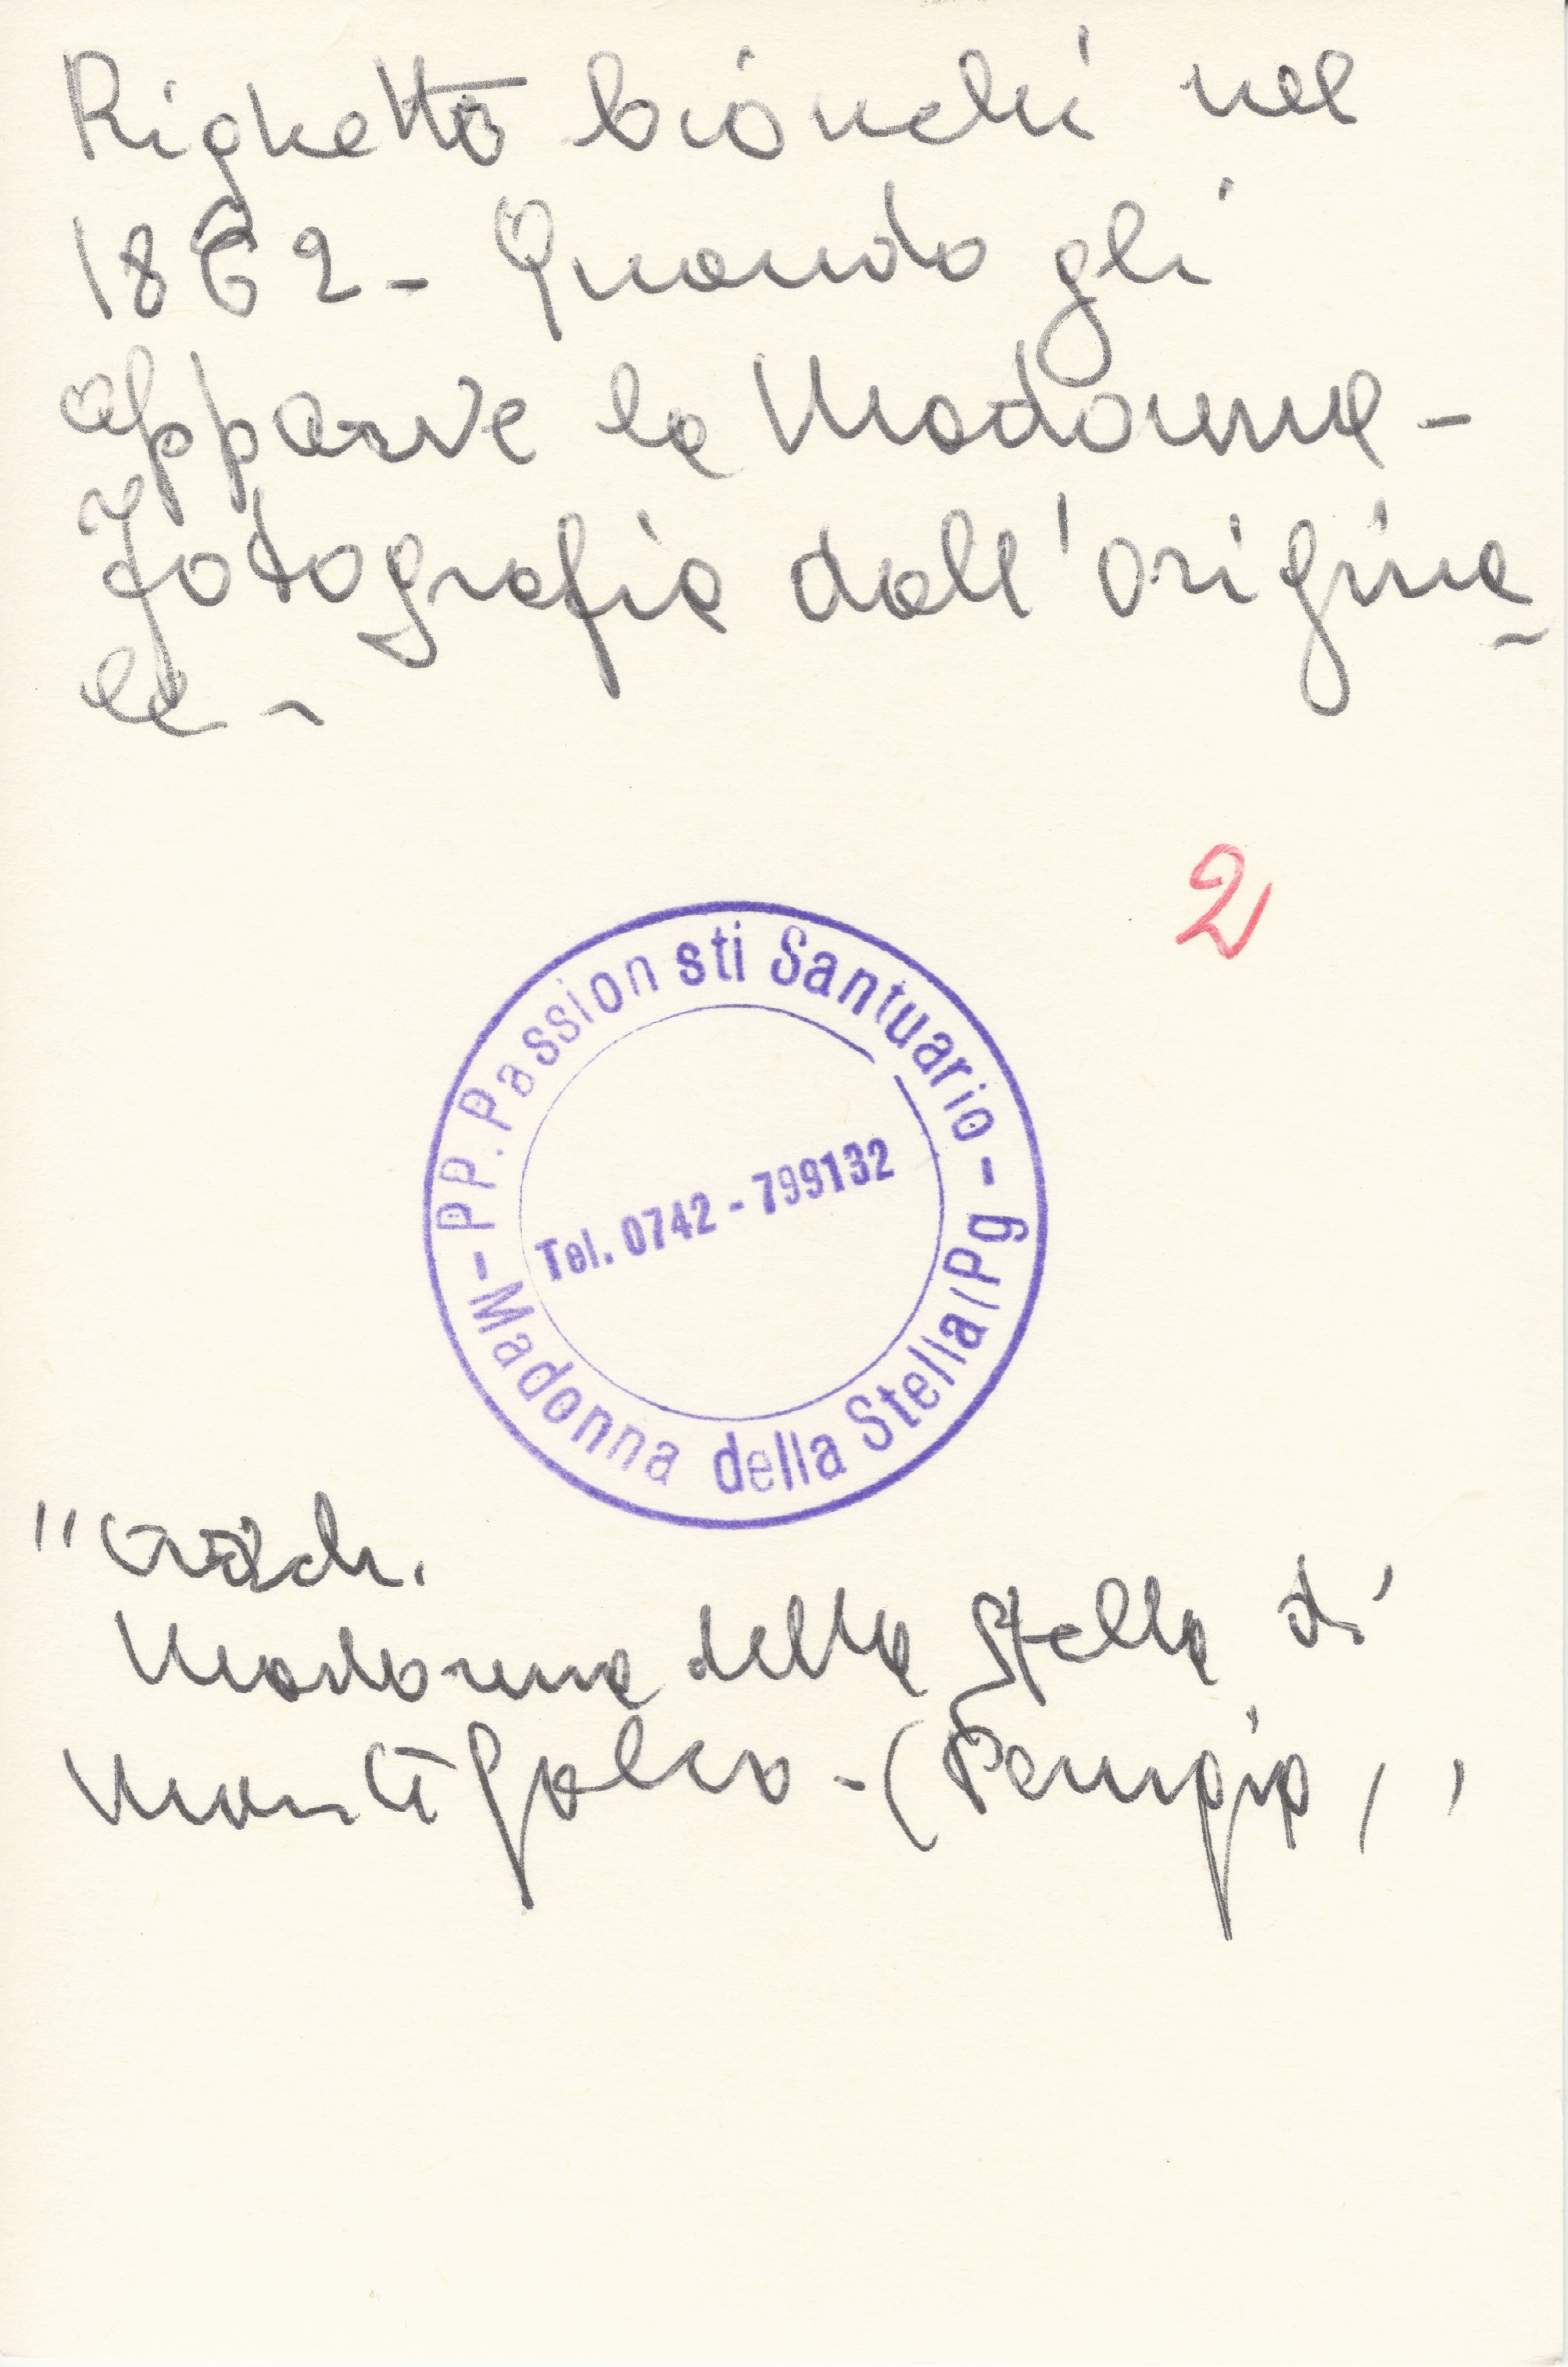 Righetto bionchi nel
1862 - Quando gli
apparve la Madonna -
Fotografia dall'origina
le -
2
- PP. Passionisti Santuario -
Madonna della Stella (Pg
Tel. 0742 - 799132
Madonna della Stella di
Montefalco - (Perugia)"